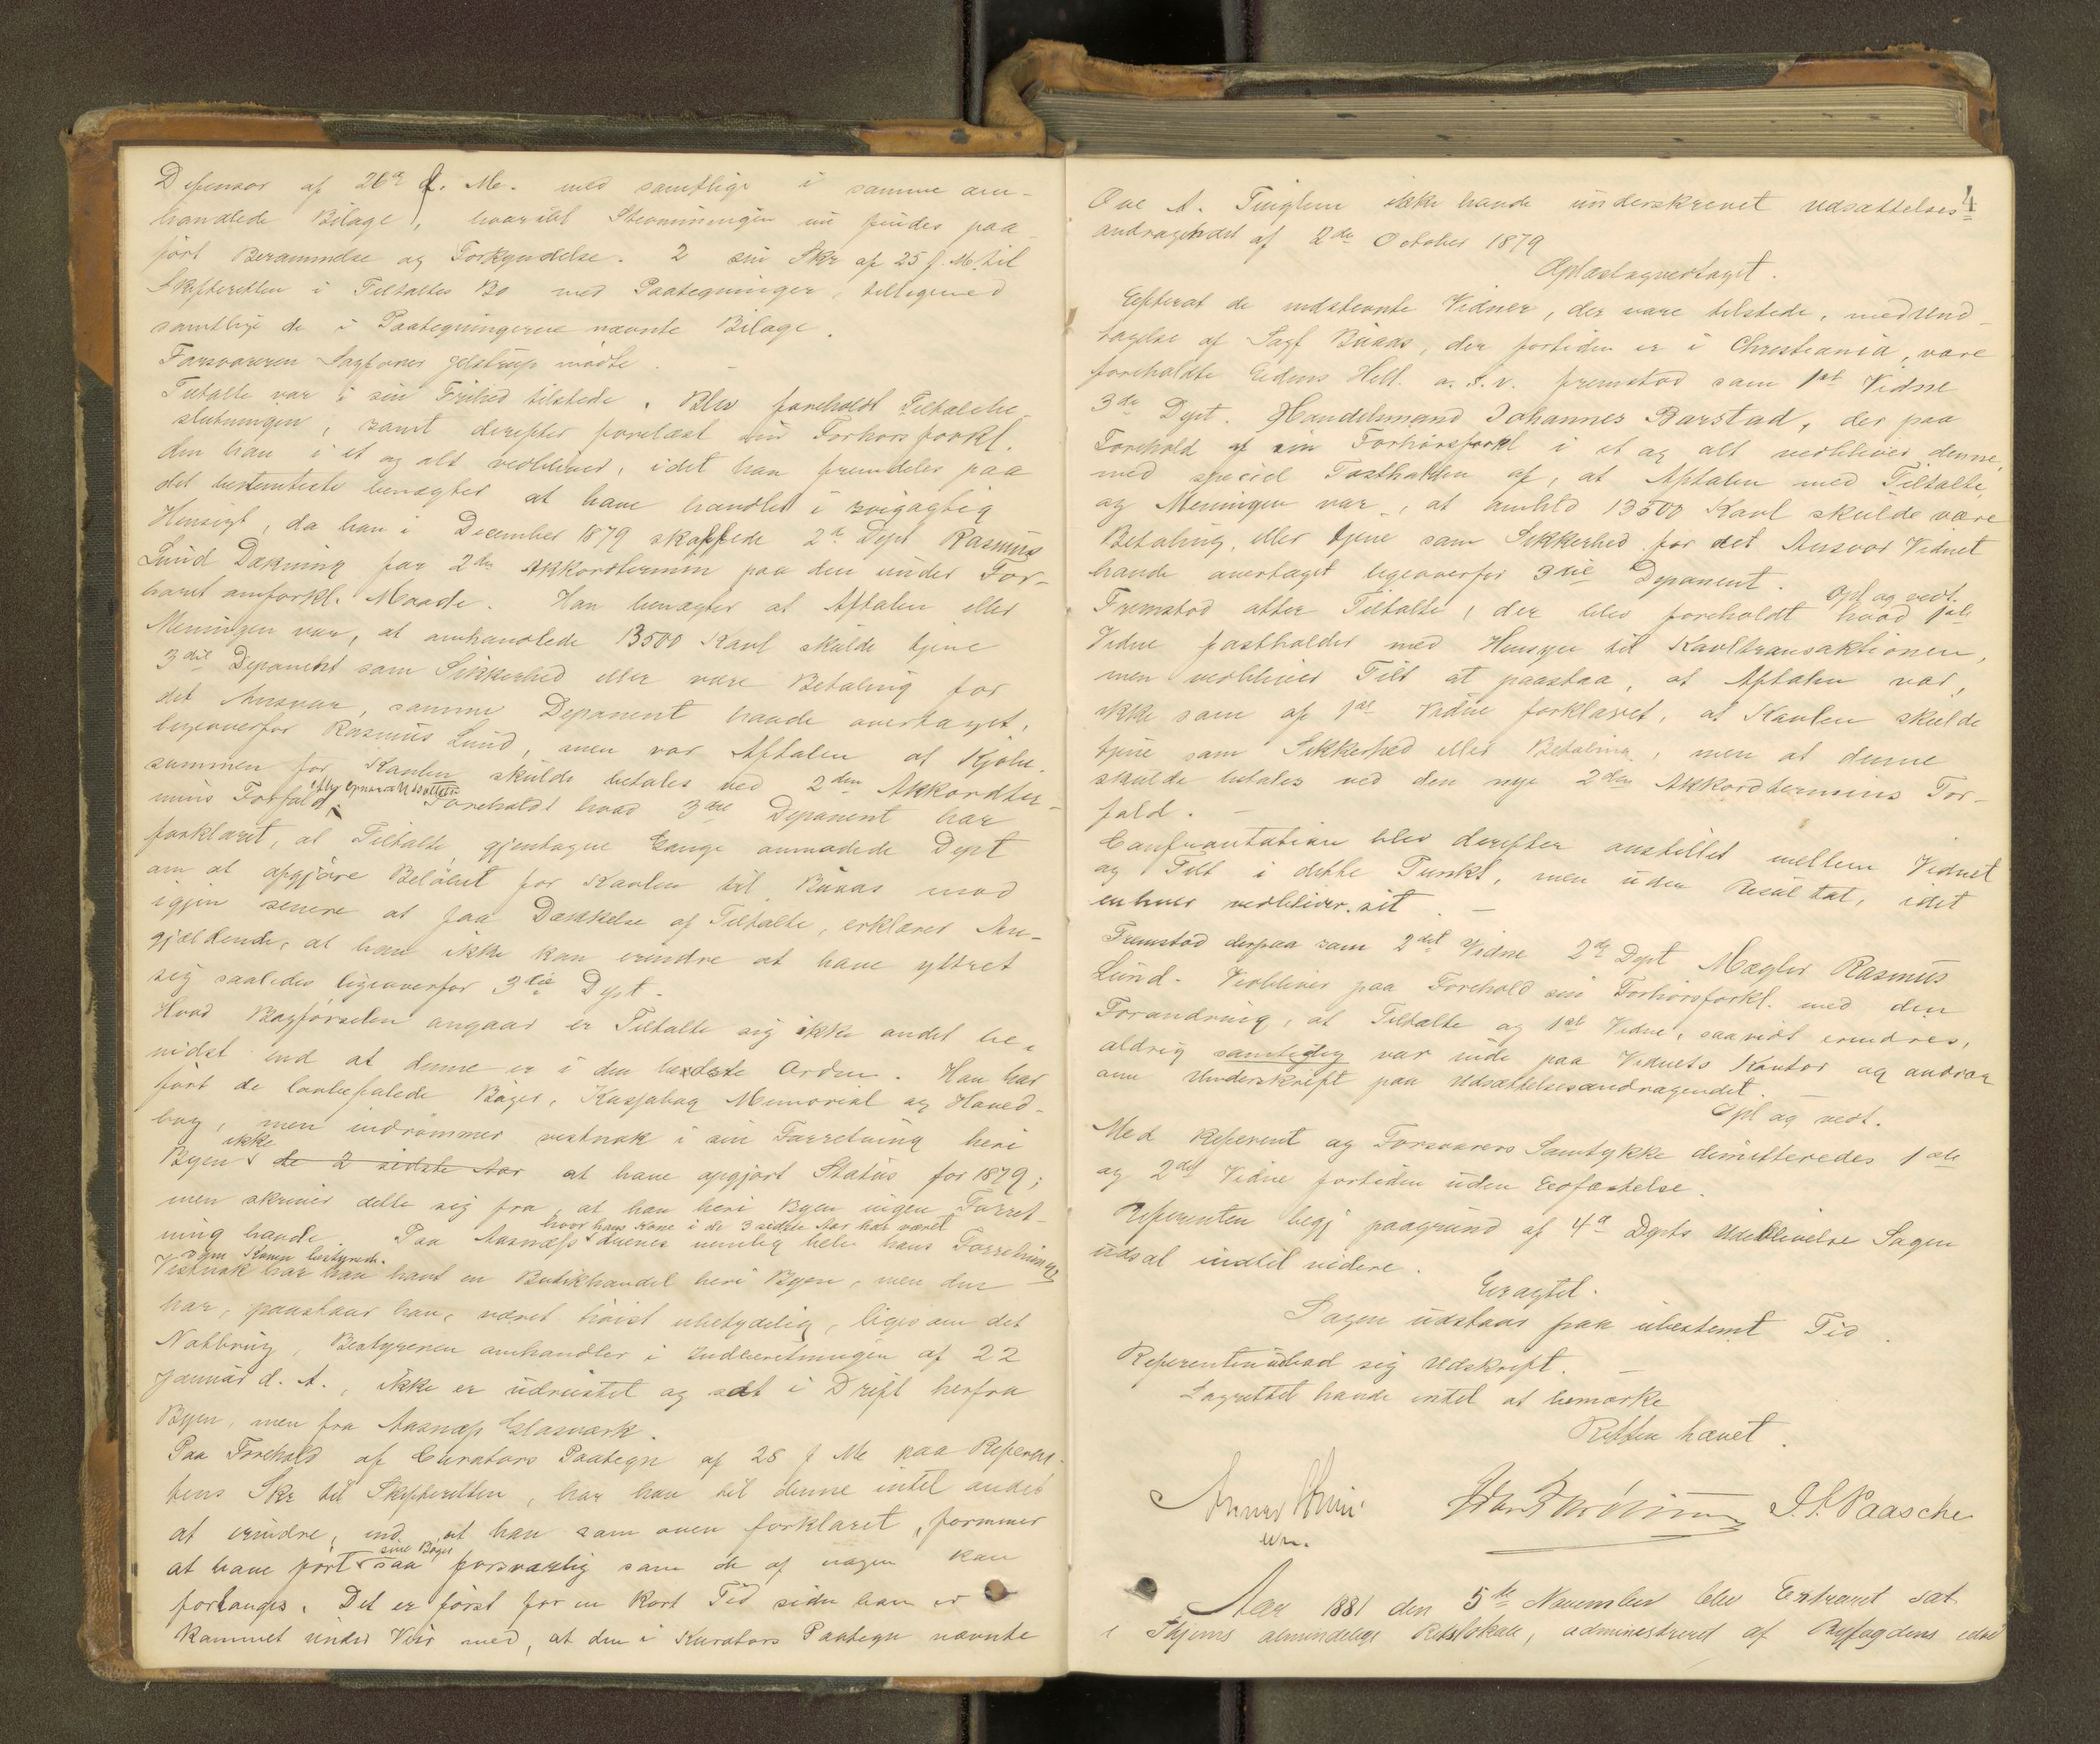 Defensor af 26de f. Me. med samtlige i samme om-
handlede Bilage, hvortil Stevningen nu findes paa-
ført Berammelse og Forkyndelse. 2 sin Skr af 25 f. M. til
Skifteretten i Tiltaltes Bo med Paategninger, tilligemed
samtlige de i Paategningerne nævnte Bilage.
Forsvareren Sagfører Gelstrup mødte.
Tiltalte var i sin Frihed tilstede. Blev foreholdt Tiltalebe-
slutningen, samt derefter forelæst sin Forhørsforkl.
den han i et og alt vedbliver, idet han fremdeles paa
det bestemteste benægter at have handlet i svigagtig
Hensigt, da han i December 1879 skaffede 2den Dept Rasmus
Lund Dækning for 2den Akkordtermin paa den under For-
høret omforkl. Maade. Han benægter at Aftalen eller
Meningen var, at omhandlede 13500 Kavl skulde tjene
3die Deponent som Sikkerhed eller være Betaling for
det Ansvar, samme Deponent havde overtaget,
ligeoverfor Rasmus Lund, men var Aftalen at Kjøbe-
summen for Kavlen skulde betales ved 2den Akkordter-
mins Forfald. Foreholdt hvad 3die Deponent har
forklaret, at Tiltalte gjentagne Gange anmodede Dept
om at opgjøre Beløbet for Kavlen til Baaas mod
igjen senere at faa Dækkelse af Tiltalte, erklærer An-
gjældende, at han ikke kan erindre at have yttret
sig saaledes ligeoverfor 3die Dept.
Hvad Bogførselen angaar er Tiltalte sig ikke andet be-
vidst end at denne er i den bedste Orden. Han har
ført de lovbefalede Bøger, Kassabog Memorial og Hoved-
bog, men indrømmer vistnok i sin Forretning heri
Byen ikke de 2 sidste Aar at have opgjort Status for 1879;
men skriver dette sig fra, at han heri Byen ingen Forret-
ning havde. Paa Aasnæs hvor hans Kone i de 3 sidste Aar har været
drives nemlig hele hans Forretning
som Konen bestyrede.
Vistnok har han havt en Butikhandel heri Byen, men den
har, paastaar han, været høist ubetydelig, ligesom det
Notbrug, Bestyreren omhandler i Indberetningen af 22
Januar d. A., ikke er udrustet og sat i Drift herfra
Byen, men fra Aasnæs Glasværk.
Paa Forehold af Curators Paategn af 28 f Me paa Referen-
tens Skr til Skifteretten, har han til denne intet andet
at erindre, end at han som oven forklaret, formener
at have ført sine Bøger saa forsvarlig som de af nogen kan
forlanges. Det er først for en kort Tid siden han er
kommet under Veir med, at den i Kurators Paategn nævnte
4
Ove A. Tuiglen ikke havde underskrevet Udsættelses-
andragendet af 2den October 1879
Oplæst og vedtaget.
Efterat de indstevnte Vidner, der vare tilstede, med Und-
tagelse af Sagf Baaas, der fortiden er i Christiania, vare
foreholdte Edens Hell. o. s. v. fremstod som 1ste Vidne
3die Dept. Handelsmand Johannes Barstad, der paa
Forehold af sin Forhørsforkl i et og alt vedbliver denne,
med speciel Fastholden af, at Aftalen med Tiltalte,
og Meningen var, at omhld 13500 Kavl skulde være
Betaling, eller tjene som Sikkerhed for det Ansvar Vidnet
havde overtaget ligeoverfor 3die Deponent.
Opl og vedt.
Fremstod atter Tiltalte, der blev foreholdt hvad 1ste
Vidne fastholder med Hensyn til Kavltransaktionen,
men vedbliver Tilt at paastaa, at Aftalen var,
ikke som af 1ste Vidne forklaret, at Kavlen skulde
tjene som Sikkerhed eller Betaling, men at denne
skulde betales ved den nye 2den Akkordtermins For-
fald.
Confrontation blev derefter anstillet mellem Vidnet
og Tilt i dette Punkt, men uden Resultat, idet
enhver vedbliver sit.
Fremstod derpaa som 2det Vidne 2de Dept Mægler Rasmus
Lund. Vedbliver paa Forehold sin Forhørsforkl. med den
Forandring, at Tiltalte og 1ste Vidne, saavidt erindres,
aldrig samtidig var inde paa Vidnets Kontor og androg
om Underskrift paa Udsættelsesandragendet.
Opl og vedt.
Med Referent og Forsvarers Samtykke demitteredes 1ste
og 2det Vidne fortiden uden Edfæstelse.
Referenten begj paagrund af 4de Depts Udeblivelse Sagen
udsat indtil videre.
Eragtet.
Sagen udstaar paa ubestemt Tid.
Referenten udbad sig Udskrift.
Lagrettet havde intet at bemærke
Retten hævet.
J. S. Paasche
Aar 1881 den 5te November blev Extraret sat
i Thjems almindelige Retslokale, administreret af Byfogdens edsv